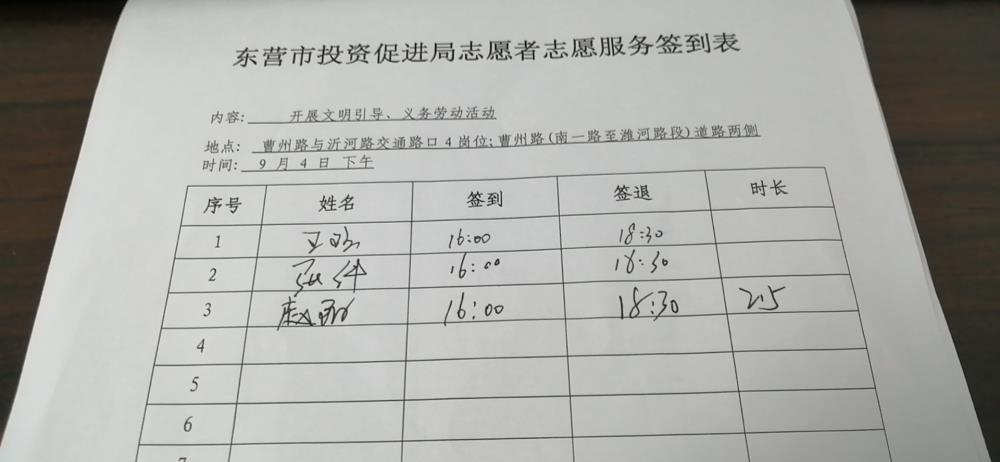 东营市投资促进局志愿者志愿服务签到表
内容: 开展文明引导、义务劳动活动
地点: 曹州路与沂河路交通路口 4 岗位;曹州路(南一路至潍河路段)道路两侧
时间: 9 月 4 日 下午
序号 姓名 签到 签退 时长
1 16:00 18:30
2 16:00 18:30
3 16:00 18:30 2.5
4
5
6